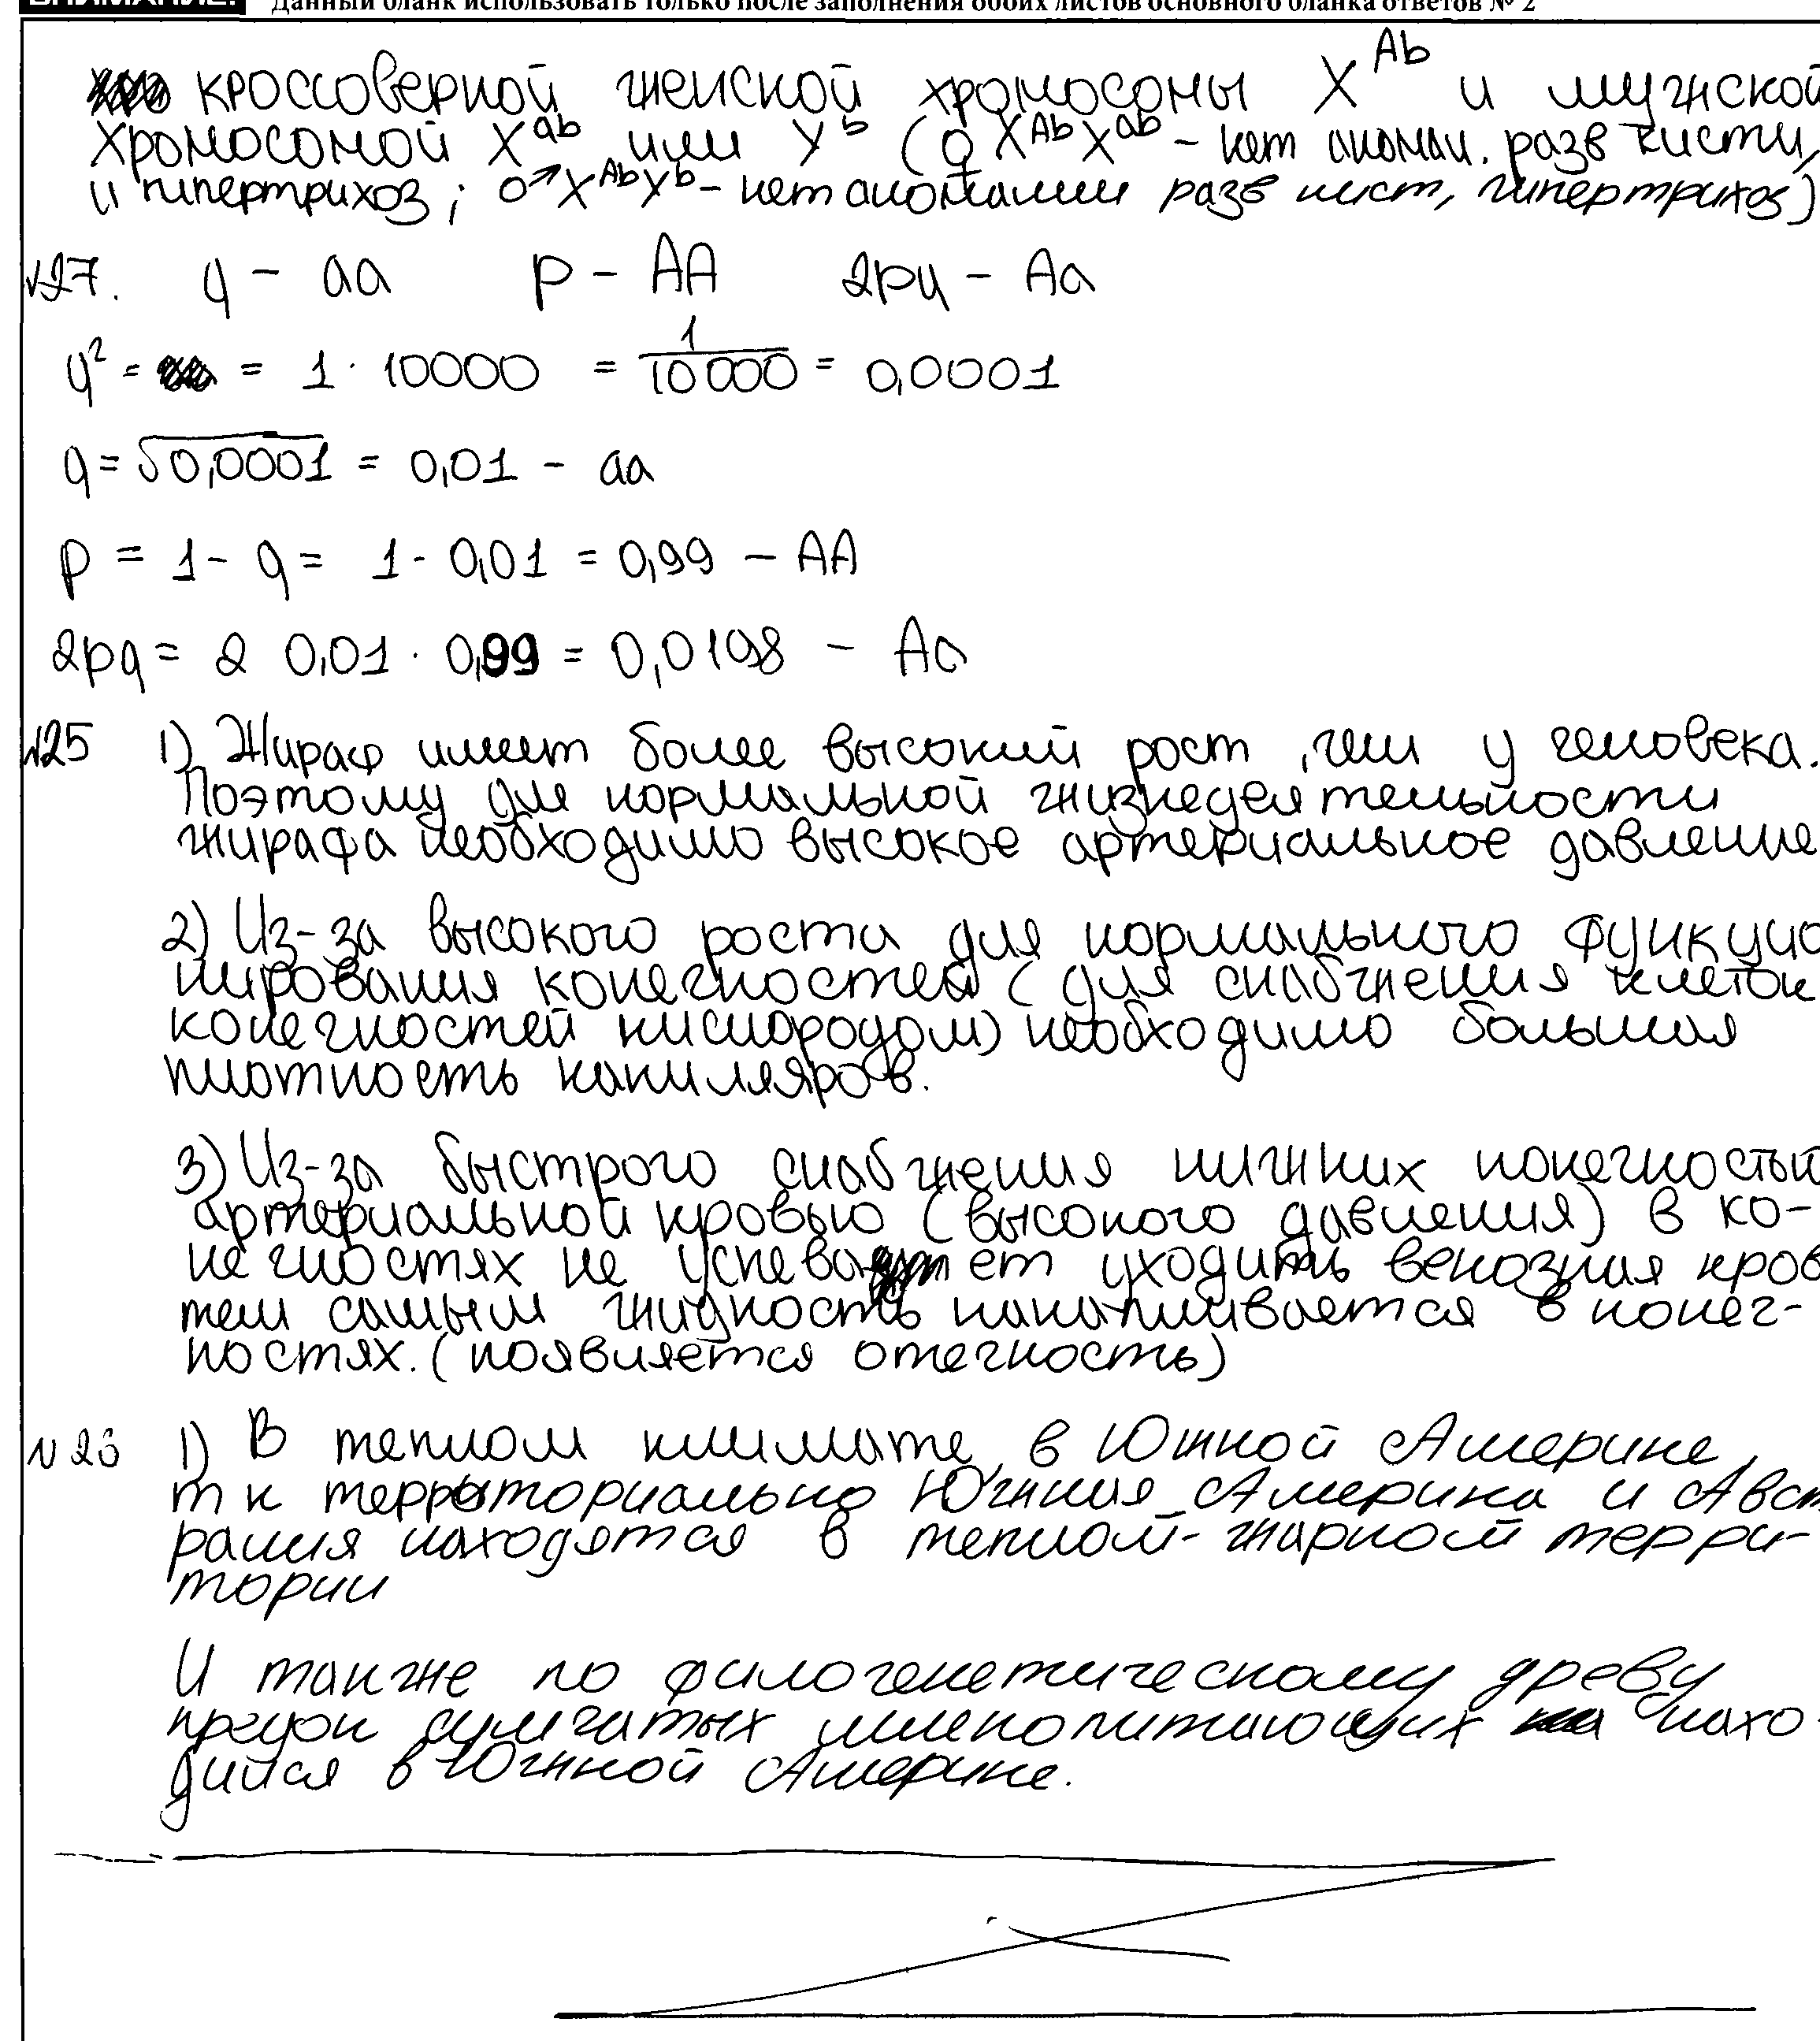 ВНИМАНИЕ! Данный бланк использовать только после заполнения обоих листов основного бланка ответов № 2
кроссоверной женской хромосомы X^Ab и мужской
хромосомой X^ab или Y^b (♀ X^Ab X^ab - нет аномал. разв кисти,
и гипертрихоз; ♂ X^Ab Y^b - нет аномалии разв кист, гипертрихоз)
№27. q - aa p - AA 2pq - Aa
q² = = 1 · 10000 = 1/10000 = 0,0001
q = √0,0001 = 0,01 - aa
p = 1 - q = 1 - 0,01 = 0,99 - AA
2pq = 2 0,01 · 0,99 = 0,0198 - Aa
№25 1) Жираф имеет более высокий рост, чем у человека.
Поэтому для нормальной жизнедеятельности
жирафа необходимо высокое артериальное давление
2) Из-за высокого роста для нормального функцио
нирования конечностей (для снабжения клеток
конечностей кислородом) необходимо большая
плотность капилляров.
3) Из-за быстрого снабжения нижних конечностьй
артериальной кровью (высокого давления) в ко-
нечностях не успевает уходить венозная кров
тем самым жидкость накапливается в конеч-
ностях. (появляется отечность)
№26 1) В теплом климате, в Южной Америке,
т к территориально Южная Америка и Авст
ралия находятся в теплой-жаркой терри-
тории
И также по филогенетическому древу
предок сумчатых млекопитающих нахо
дился в Южной Америке.